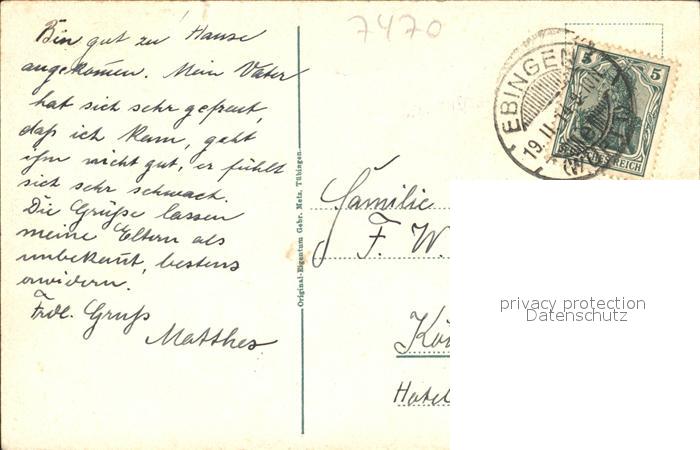 7470
Bin gut zu Hause
angekommen. Mein Vater
hat sich sehr gefreut,
daß ich kam, geht
ihm nicht gut, er fühlt
sich sehr schwach.
Die Grüße lassen
meine Eltern als
unbekannt, bestens
erwidern.
Frdl. Gruß
Matthes
Original-Eigentum Gebr. Metz, Tübingen.
EBINGEN
19. 11.
5 5
REICH
Familie
F. W.
Kö
Hotel
privacy protection
Datenschutz